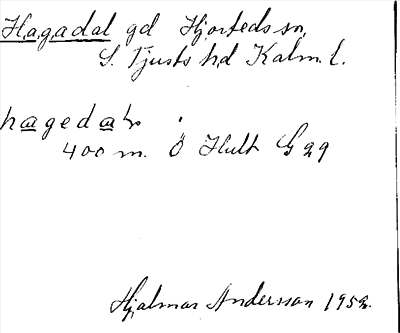 Hagadal gd Hjorteds sn,
S. Tjusts hd Kalm. l.
hageda
400 m. Ö Hult G 29
Hjalmar Andersson 1952.